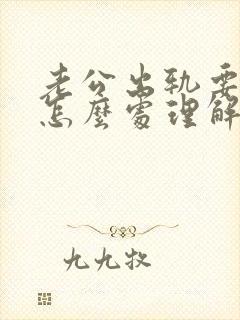 老公出軌要
怎麼處理解
九九牧